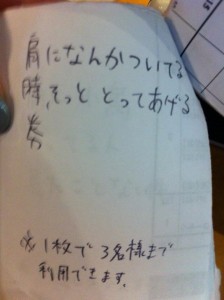 肩になんかついてる
時、そっと とってあげる
券
※ 1枚で3名様まで
利用できます。